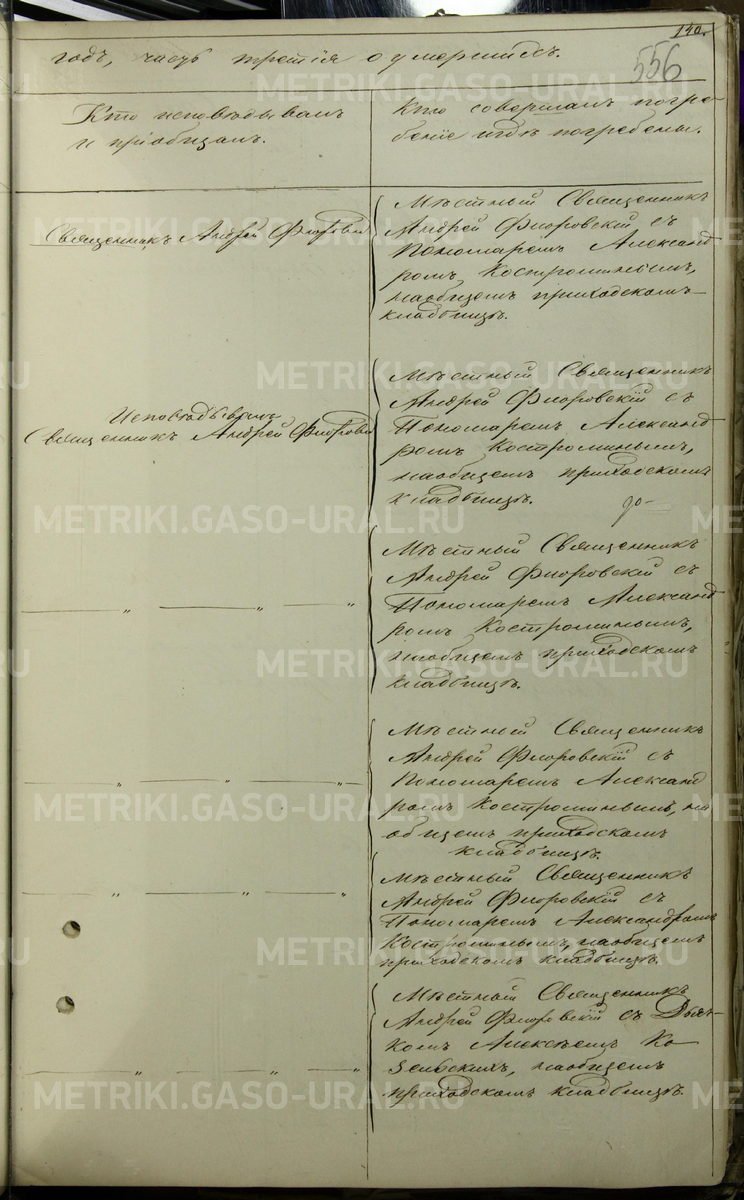 140.
556
годъ, часть третія о умершихъ.
Кто исповѣдывалъ
и пріобщалъ.
Кто совершалъ погре-
беніе и гдѣ погребены.
Священникъ Андрей Флоровскій
Мѣстный Священникъ
Андрей Флоровскій съ
Пономаремъ Александ
ромъ Костроминымъ,
на общемъ приходскомъ
кладбищѣ.
Исповѣдывалъ
Священникъ Андрей Флоровскій
Мѣстный Священникъ
Андрей Флоровскій съ
Пономаремъ Александ
ромъ Костроминымъ,
на общемъ приходскомъ
кладбищѣ.
— „ — „ — „
Мѣстный Священникъ
Андрей Флоровскій съ
Пономаремъ Александ
ромъ Костроминымъ,
на общемъ приходскомъ
кладбищѣ.
— „ — „ — „
Мѣстный Священникъ
Андрей Флоровскій съ
Пономаремъ Александ
ромъ Костроминымъ, на
общемъ приходскомъ
кладбищѣ.
— „ — „ — „
Мѣстный Священникъ
Андрей Флоровскій съ
Пономаремъ Александромъ
Костроминымъ, на общемъ
приходскомъ кладбищѣ.
— „ — „ — „
Мѣстный Священникъ
Андрей Флоровскій съ Дья-
комъ Алексѣемъ Ко
зельскихъ, на общемъ
приходскомъ кладбищѣ.
METRIKI.GASO-URAL.RU